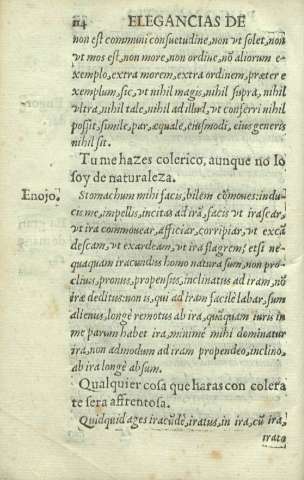 114 ELEGANCIAS DE
non est communi consuetudine, non vt solet, non
vt mos est, non more, non ordine, nõ aliorum e-
xemplo, extra morem, extra ordinem, præter e
xemplum, sic, vt nihil magis, nihil supra, nihil
vltra, nihil tale, nihil ad illud, vt conferri nihil
possit, simile, par, æquale, eiusmodi, eius generis
nihil sit.
Tu me hazes colerico, aunque no lo
soy de naturaleza.
Enojo. Stomachum mihi facis, bilem cõmoues: indu-
cis me, impellis, incitas ad irã, facis vt irascar,
vt ira commouear, afficiar, corripiar, vt excã
descam, vt exardeam, vt ira flagrem; etsi ne-
quaquam iracundus homo natura sum, non pro-
cliuis, pronus, propensus, inclinatus ad iram, nõ
iræ deditus: non is, qui ad iram facilè labar, sum
alienus, longè remotus ab ira, quãquam iuris in
me parum habet ira, minimè mihi dominatur
ira, non admodum ad iram propendeo, inclino,
ab ira longè absum.
Qualquier cosa que haras con colera
te sera affrentosa.
Quidquid ages iracũdè, iratus, in ira, cũ ira,
irato